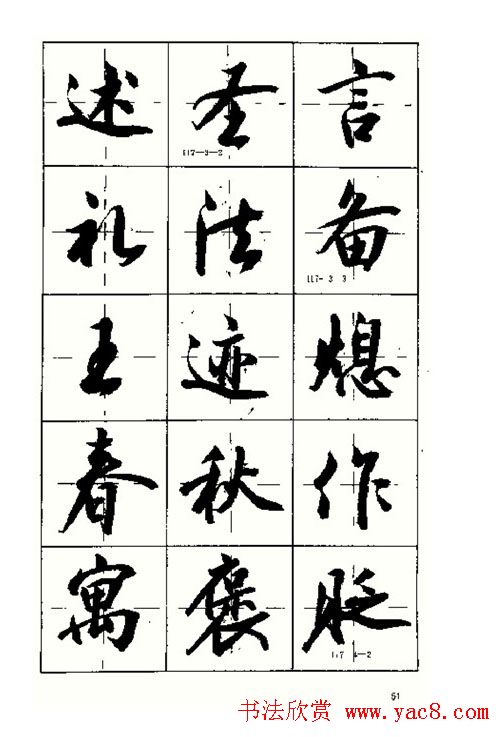 述圣言
117-3-2
礼法备
117-3 3
王迹熄
春秋作
寓褒贬
117 4-2
51
书法欣赏 www.yac8.com